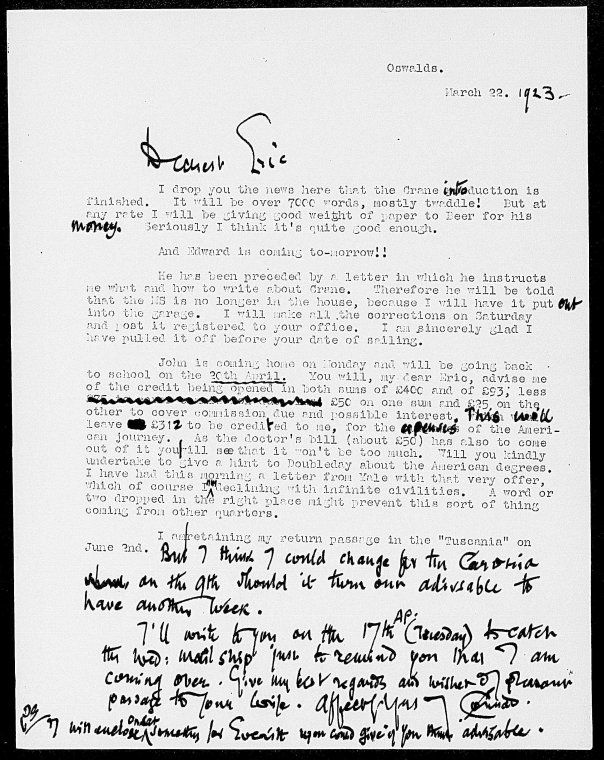 Oswalds.
March 22. 1923.
Dearest Eric
I drop you the news here that the Crane introduction is
finished. It will be over 7000 words, mostly twaddle! But at
any rate I will be giving good weight of paper to Beer for his
money. Seriously I think it's quite good enough.
And Edward is coming to-morrow!!
He has been preceded by a letter in which he instructs
me what and how to write about Crane. Therefore he will be told
that the MS is no longer in the house, because I will have it put out
into the garage. I will make all the corrections on Saturday
and post it registered to your office. I am sincerely glad I
have pulled it off before your date of sailing.
John is coming home on Monday and will be going back
to school on the 20th April. You will, my dear Eric, advise me
of the credit being opened in both sums of £400 and of £93; less
£50 on one sum and £25 on the
other to cover commission due and possible interest. This will
leave £312 to be credited to me, for the expenses of the Ameri-
can journey. As the doctor's bill (about £50) has also to come
out of it you'll see that it won't be too much. Will you kindly
undertake to give a hint to Doubleday about the American degrees.
I have had this morning a letter from Yale with that very offer,
which of course I am declining with infinite civilities. A word or
two dropped in the right place might prevent this sort of thing
coming from other quarters.
I am retaining my return passage in the "Tuscania" on
June 2nd. But I think I could change for the Caronia
on the 9th should it turn out advisable to
have another week.
I'll write to you on the 17th Ap: (Tuesday) to catch
the Wed: mail ship just to remind you that I am
coming over. Give my best regards and wishes of pleasant
passage to your wife. Affectly Yrs J Conrad.
PS I will enclose something for Everitt you could give if you think advisable.